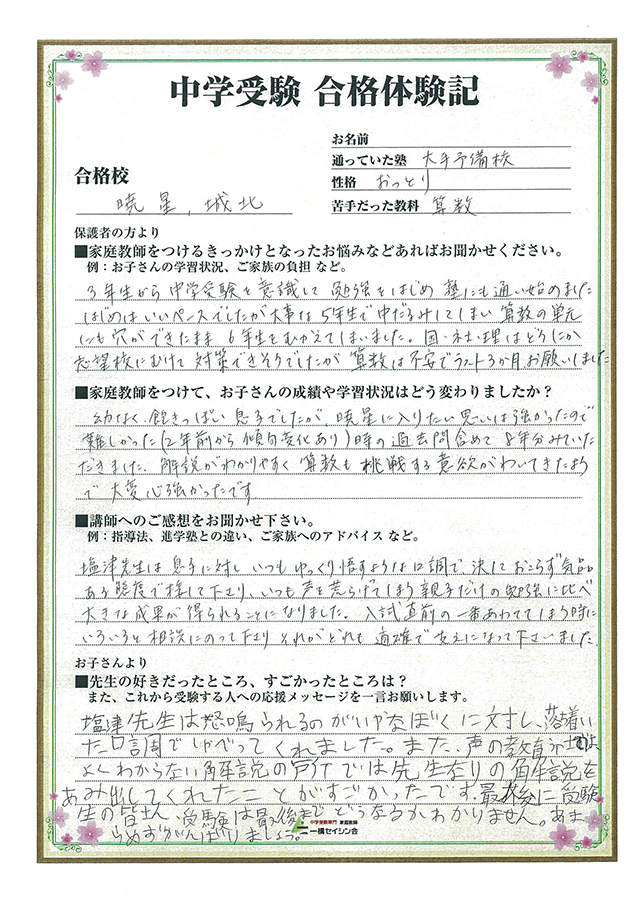 中学受験 合格体験記
お名前
通っていた塾 大手予備校
合格校
性格 おっとり
暁星, 城北
苦手だった教科 算数
保護者の方より
■家庭教師をつけるきっかけとなったお悩みなどあればお聞かせください。
例:お子さんの学習状況、ご家族の負担 など。
3年生から中学受験を意識して 勉強をはじめ 塾にも通い始めました
はじめはいいペースでしたが大事な5年生で中だるみしてしまい算数の単元
にも穴ができたまま 6年生をむかえてしまいました。国・社・理はどうにか
志望校にむけて 対策できそうでしたが 算数は不安でラスト3か月お願いしました
■家庭教師をつけて、お子さんの成績や学習状況はどう変わりましたか?
幼なく飽きっぽい息子でしたが、暁星に入りたい思いは強かったので
難しかった(2年前から傾向変化あり)時の過去問含めて 8年分みていた
だきました。解説がわかりやすく 算数も挑戦する意欲がわいてきたよう
で 大変心強かったです
■講師へのご感想をお聞かせ下さい。
例:指導法、進学塾との違い、ご家族へのアドバイス など。
塩津先生は息子に対し いつもゆっくり悟すような口調で、決しておこらず気品
ある態度で接して下さり、いつも声を荒らげてしまう親子だけの勉強に比べ
大きな成果が得られることになりました。入試直前の一番あわててしまう時に
いろいろと相談にのって下さり それがどれも適確で支えになって下さいました。
お子さんより
■先生の好きだったところ、すごかったところは?
また、これから受験する人への応援メッセージを一言お願いします。
塩津先生は怒鳴られるのがいやなぼくに対し、落着い
た口調でしゃべってくれました。また、声の教育社では、
よくわからない解説の所では先生なりの解説を
あみ出してくれたことがすごかったです。最後に受験
生の皆さん、受験は最後までどうなるかわかりません。あき
らめずがんばりましょう。
中学受験専門 家庭教師
一橋セイシン会